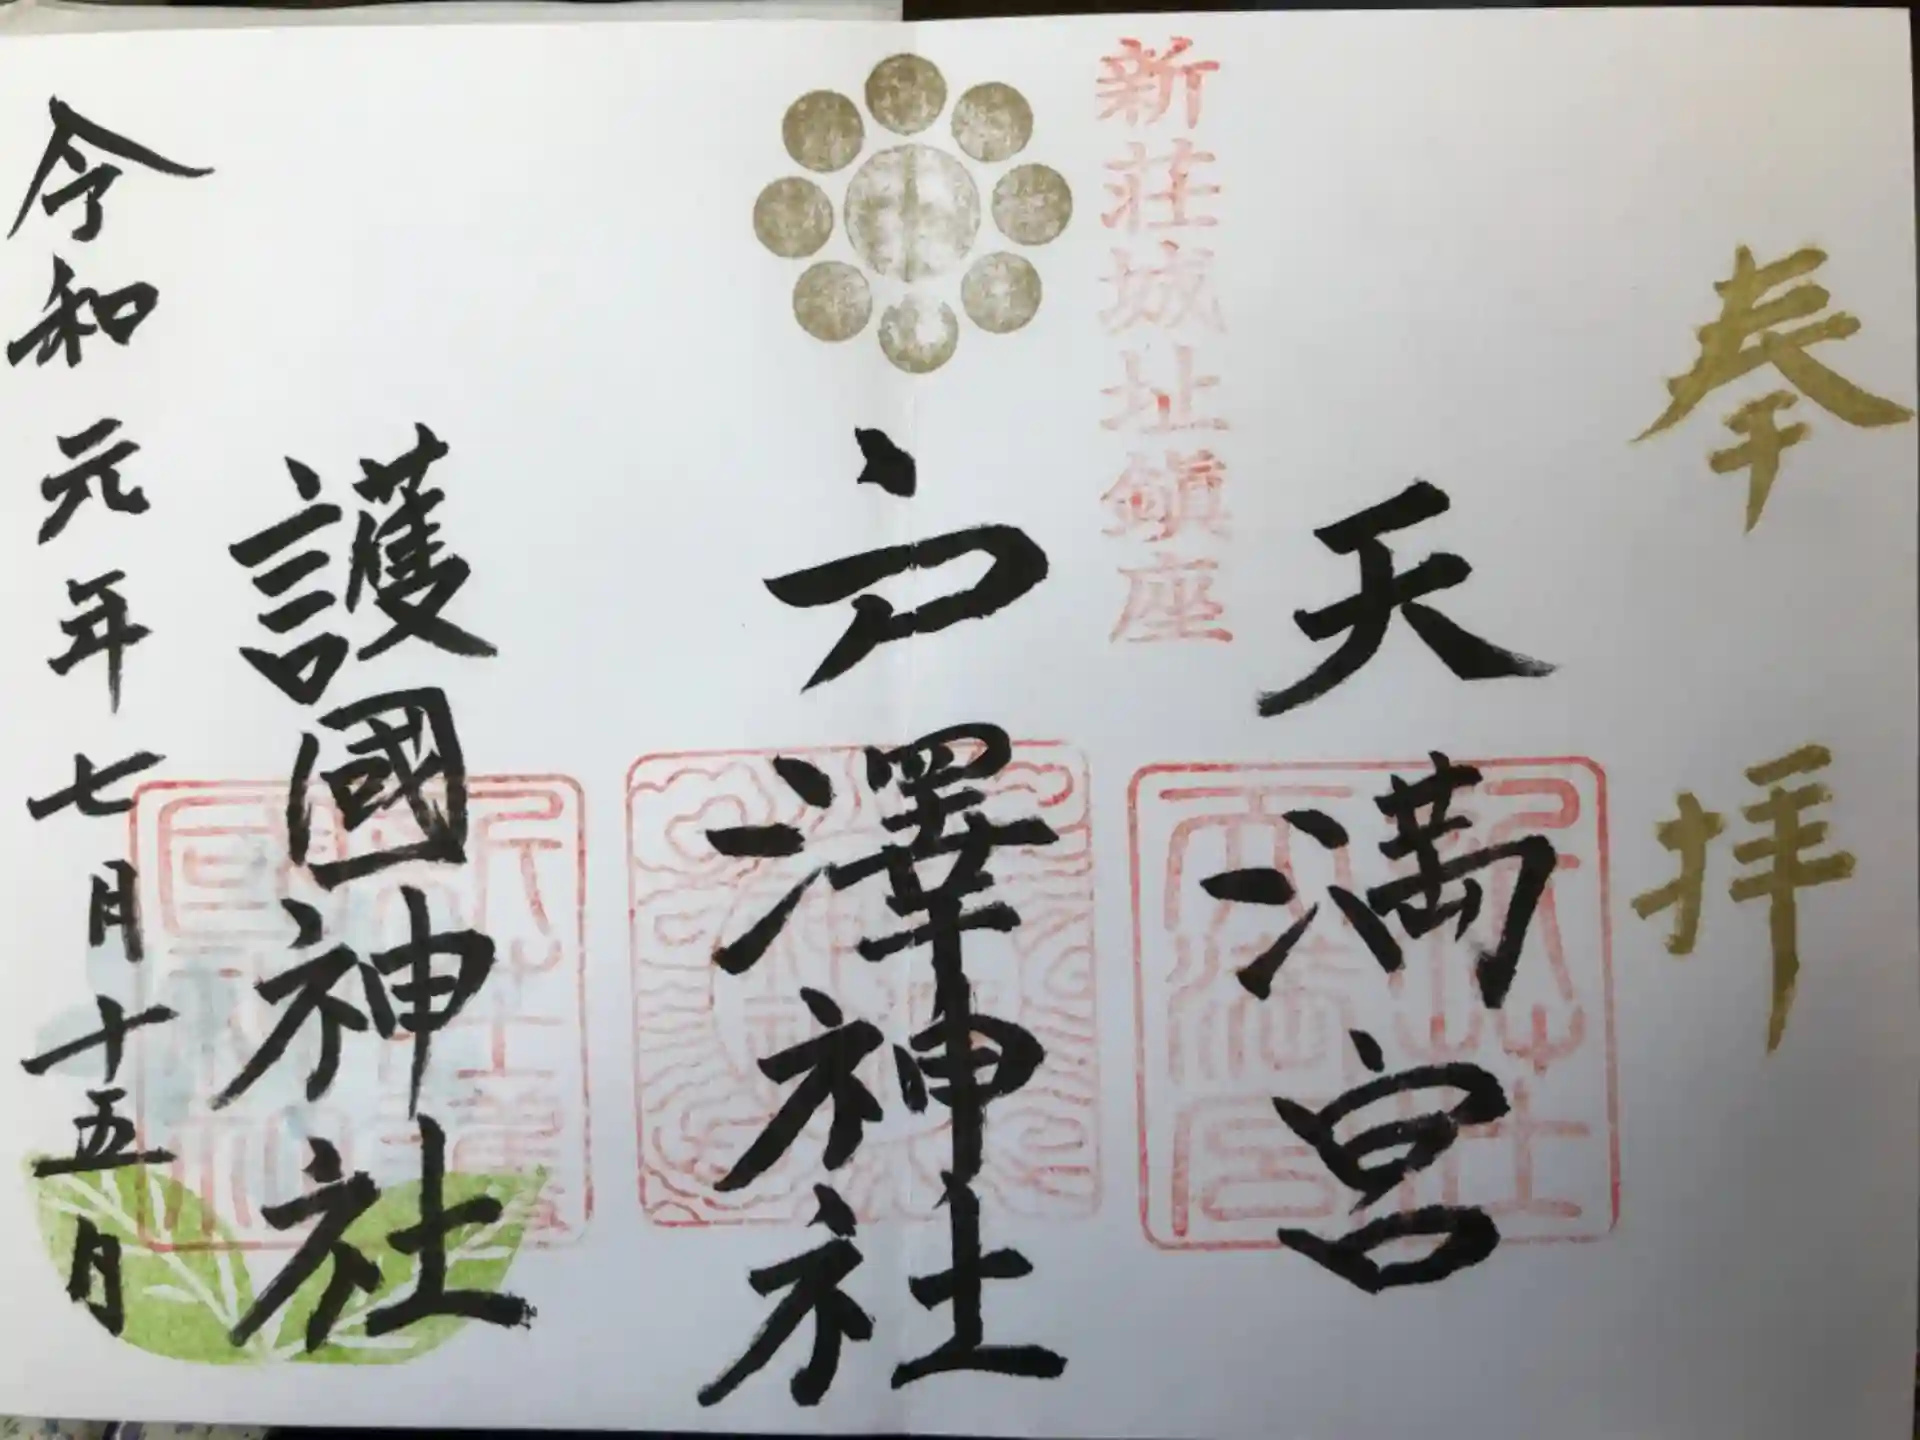 奉拝
天満宮
新荘城址鎮座
戸澤神社
護國神社
令和元年七月十五月